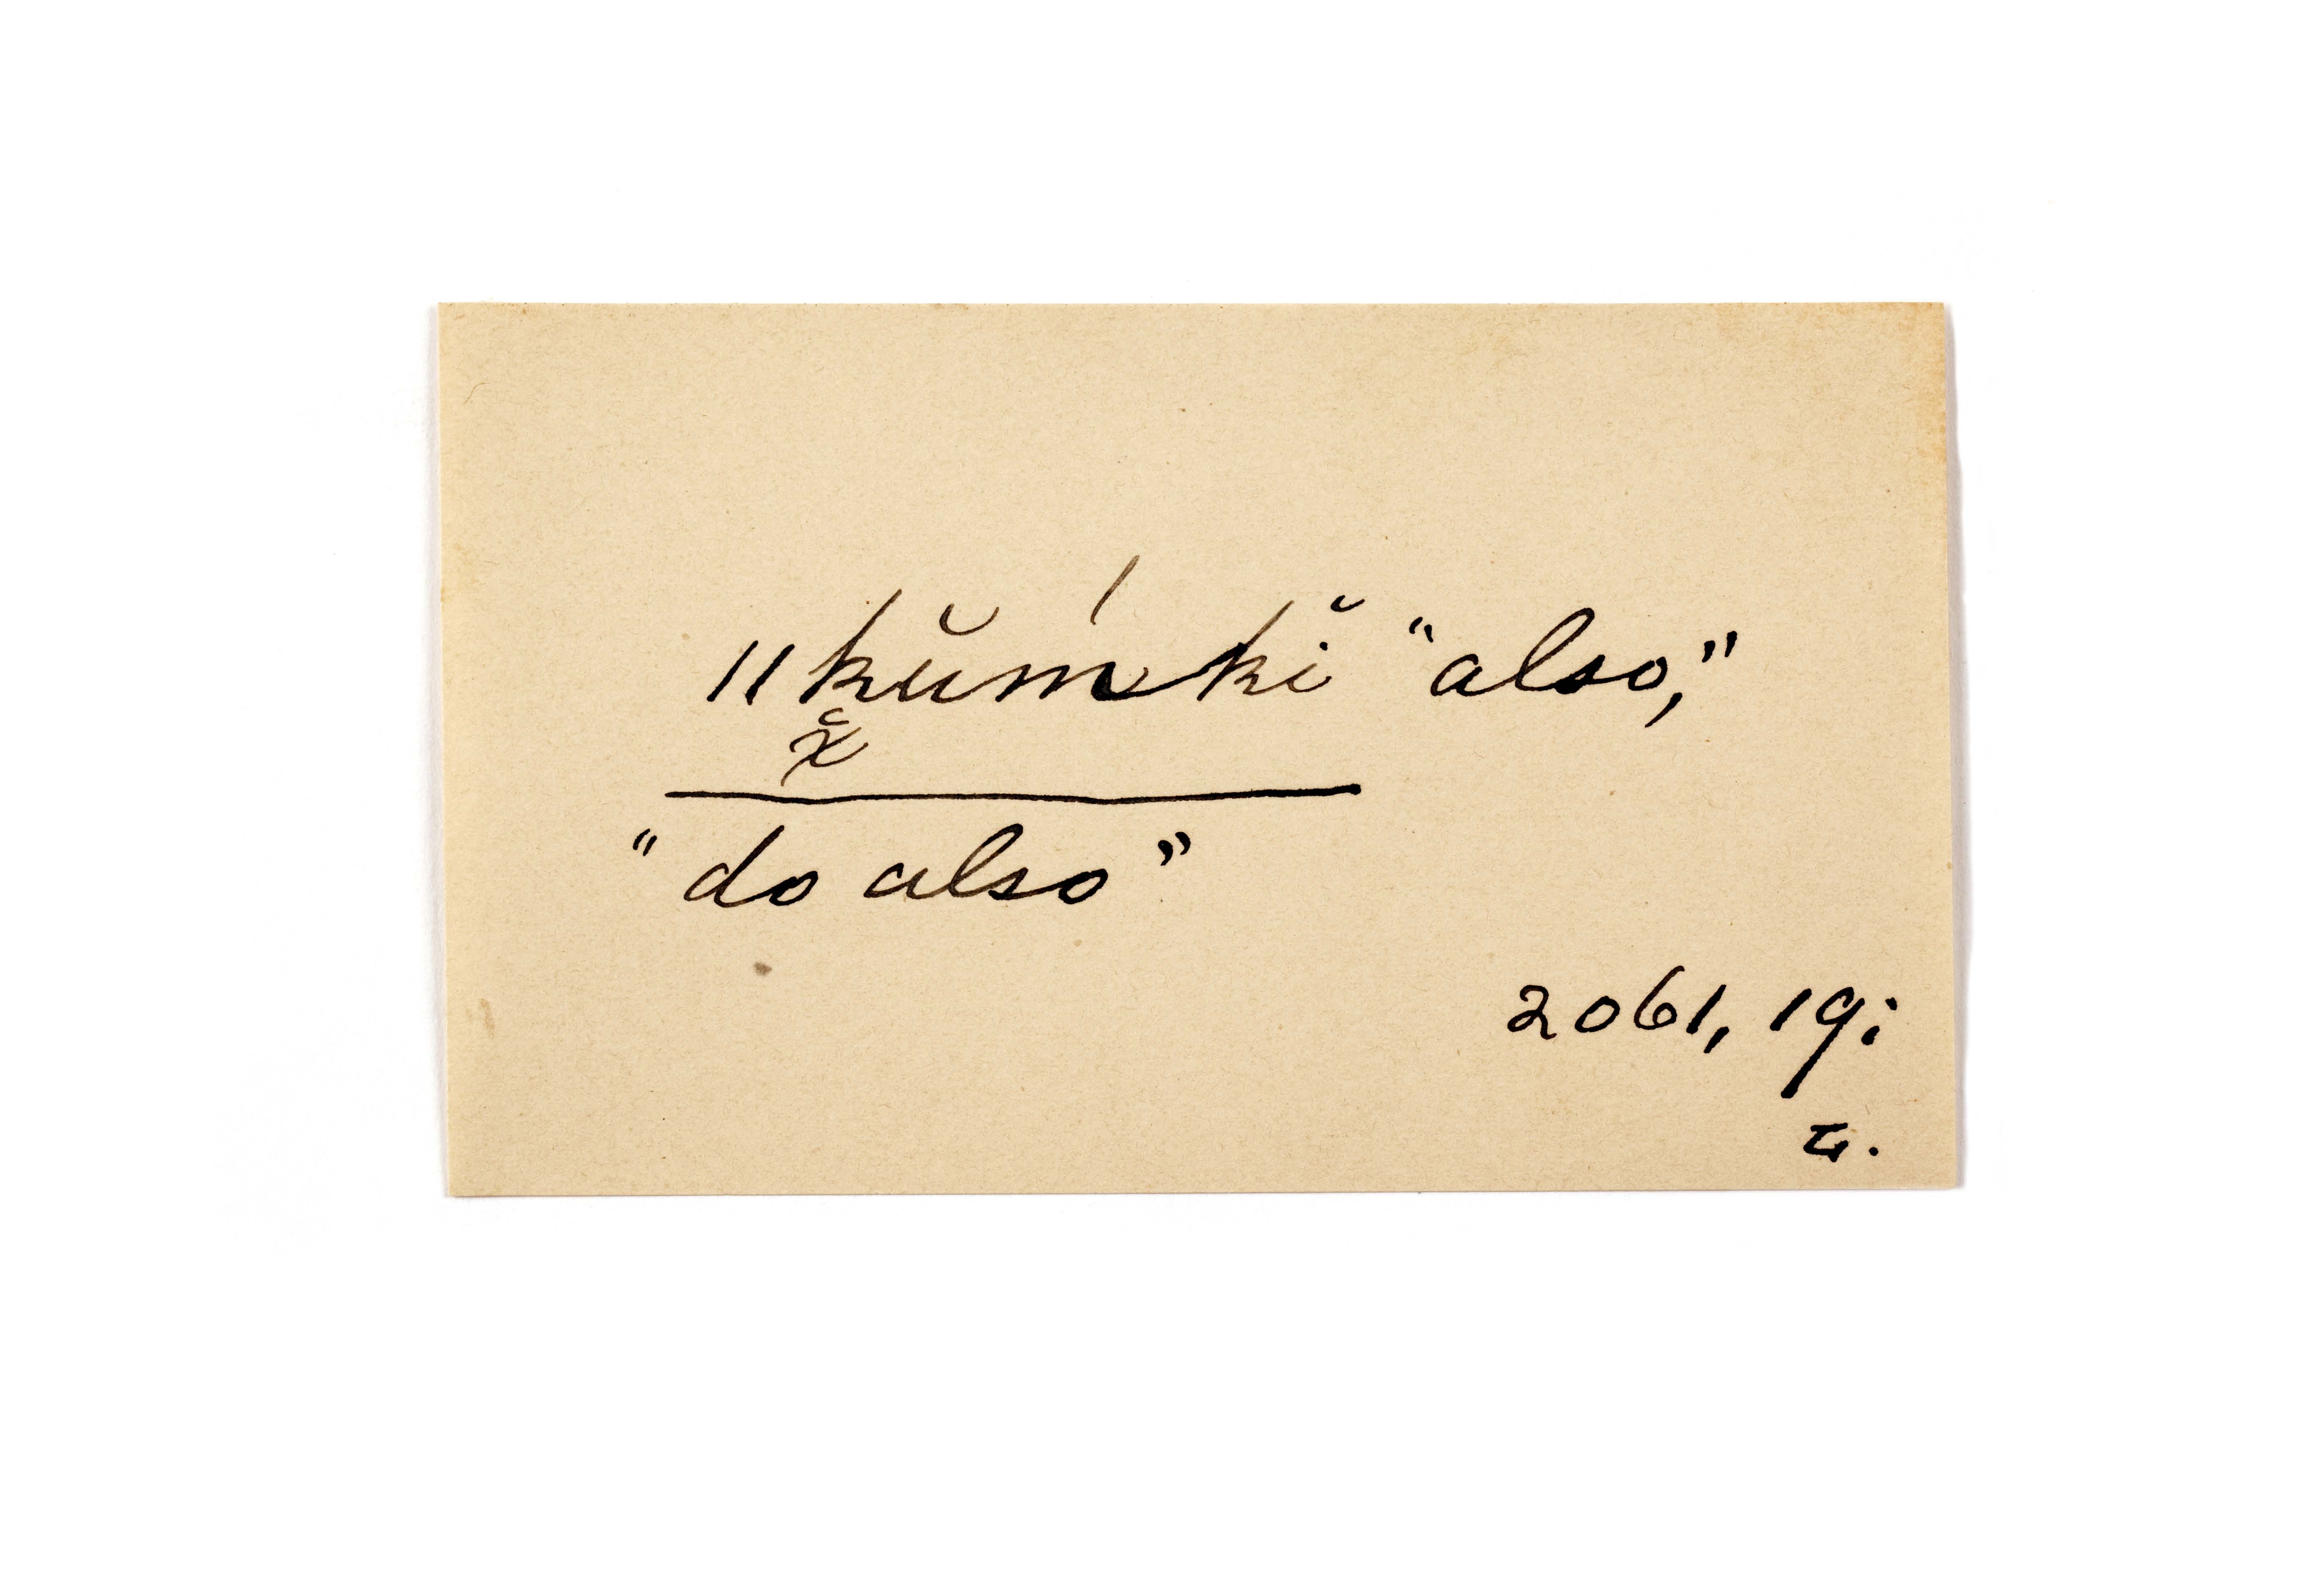 ‖kŭḿkĭ “also,”
x̆
“do also”
2061, 19;